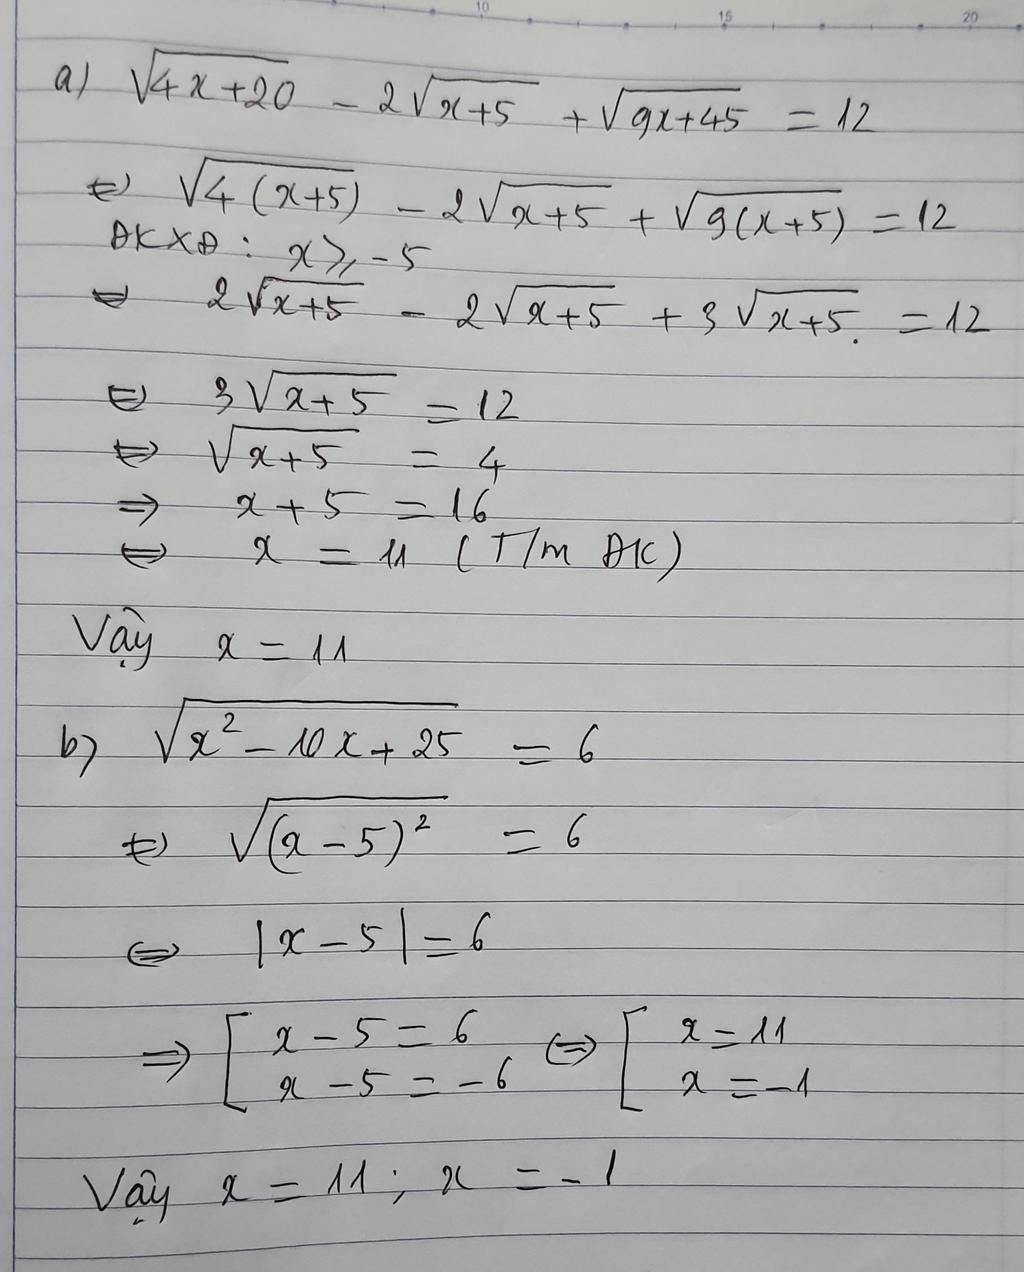 10 15 20
a) √(4x+20) - 2√(x+5) + √(9x+45) = 12
⇔ √(4(x+5)) - 2√(x+5) + √(9(x+5)) = 12
ĐKXĐ: x ⩾ -5
⇔ 2√(x+5) - 2√(x+5) + 3√(x+5) = 12
⇔ 3√(x+5) = 12
⇔ √(x+5) = 4
⇒ x+5 = 16
⇔ x = 11 (T/m ĐK)
Vậy x = 11
b) √(x² - 10x + 25) = 6
⇔ √((x-5)²) = 6
⇔ |x-5| = 6
⇒ [ x-5 = 6 ⇔ [ x = 11
x-5 = -6 x = -1
Vậy x = 11; x = -1